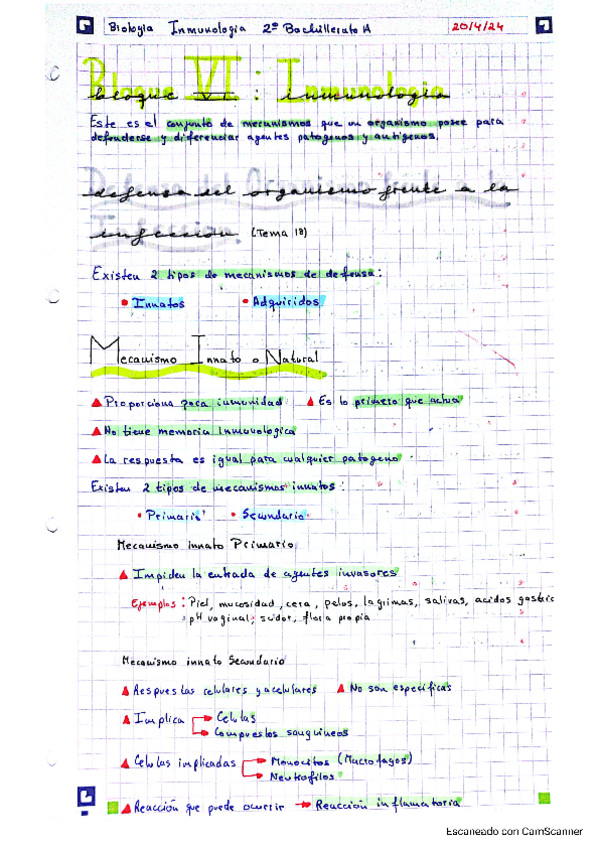 Biología Inmunología 2º Bachillerato A 20/4/24
Bloque VI: Inmunología
Este es el conjunto de mecanismos que un organismo posee para
defenderse y diferenciar agentes patogenos y antigenos.
Defensa del Organismo frente a la
Infección. (Tema 18)
Existen 2 tipos de mecanismos de defensa:
• Innatos • Adquiridos
Mecanismo Innato o Natural
Proporciona poca inmunidad Es lo primero que actua
No tiene memoria Inmunologica
La respuesta es igual para cualquier patogeno
Existen 2 tipos de mecanismos innatos:
• Primario • Secundario
Mecanismo innato Primario
Impiden la entrada de agentes invasores
Ejemplos: Piel, mucosidad, cera, pelos, lagrimas, salivas, acidos gastric
pH vaginal, sudor, flora propia
Mecanismo innato Secundario
Respuestas celulares y acelulares No son especificas
Implica → Celulas
→ Compuestos sanguineos
Celulas implicadas → Monocitos (Macrofagos)
→ Neutrofilos
Reacción que puede ocurrir → Reacción inflamatoria
Escaneado con CamScanner